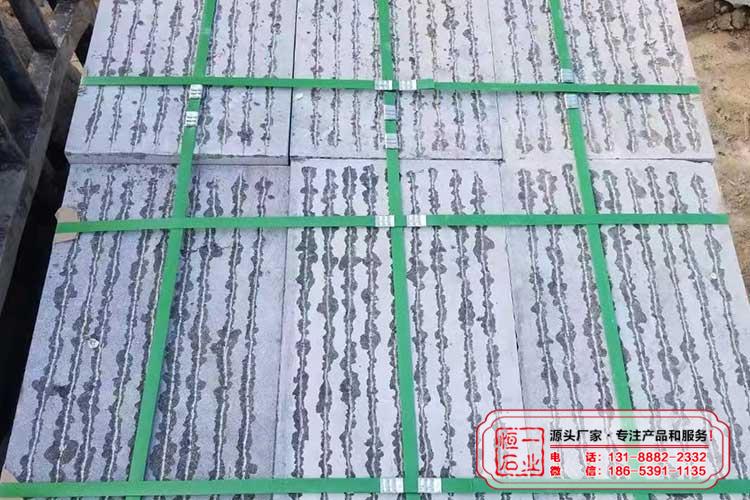 恒一石业
源头厂家·专注产品和服务!
电 话：131-8882-2332
微 信：186-5391-1135